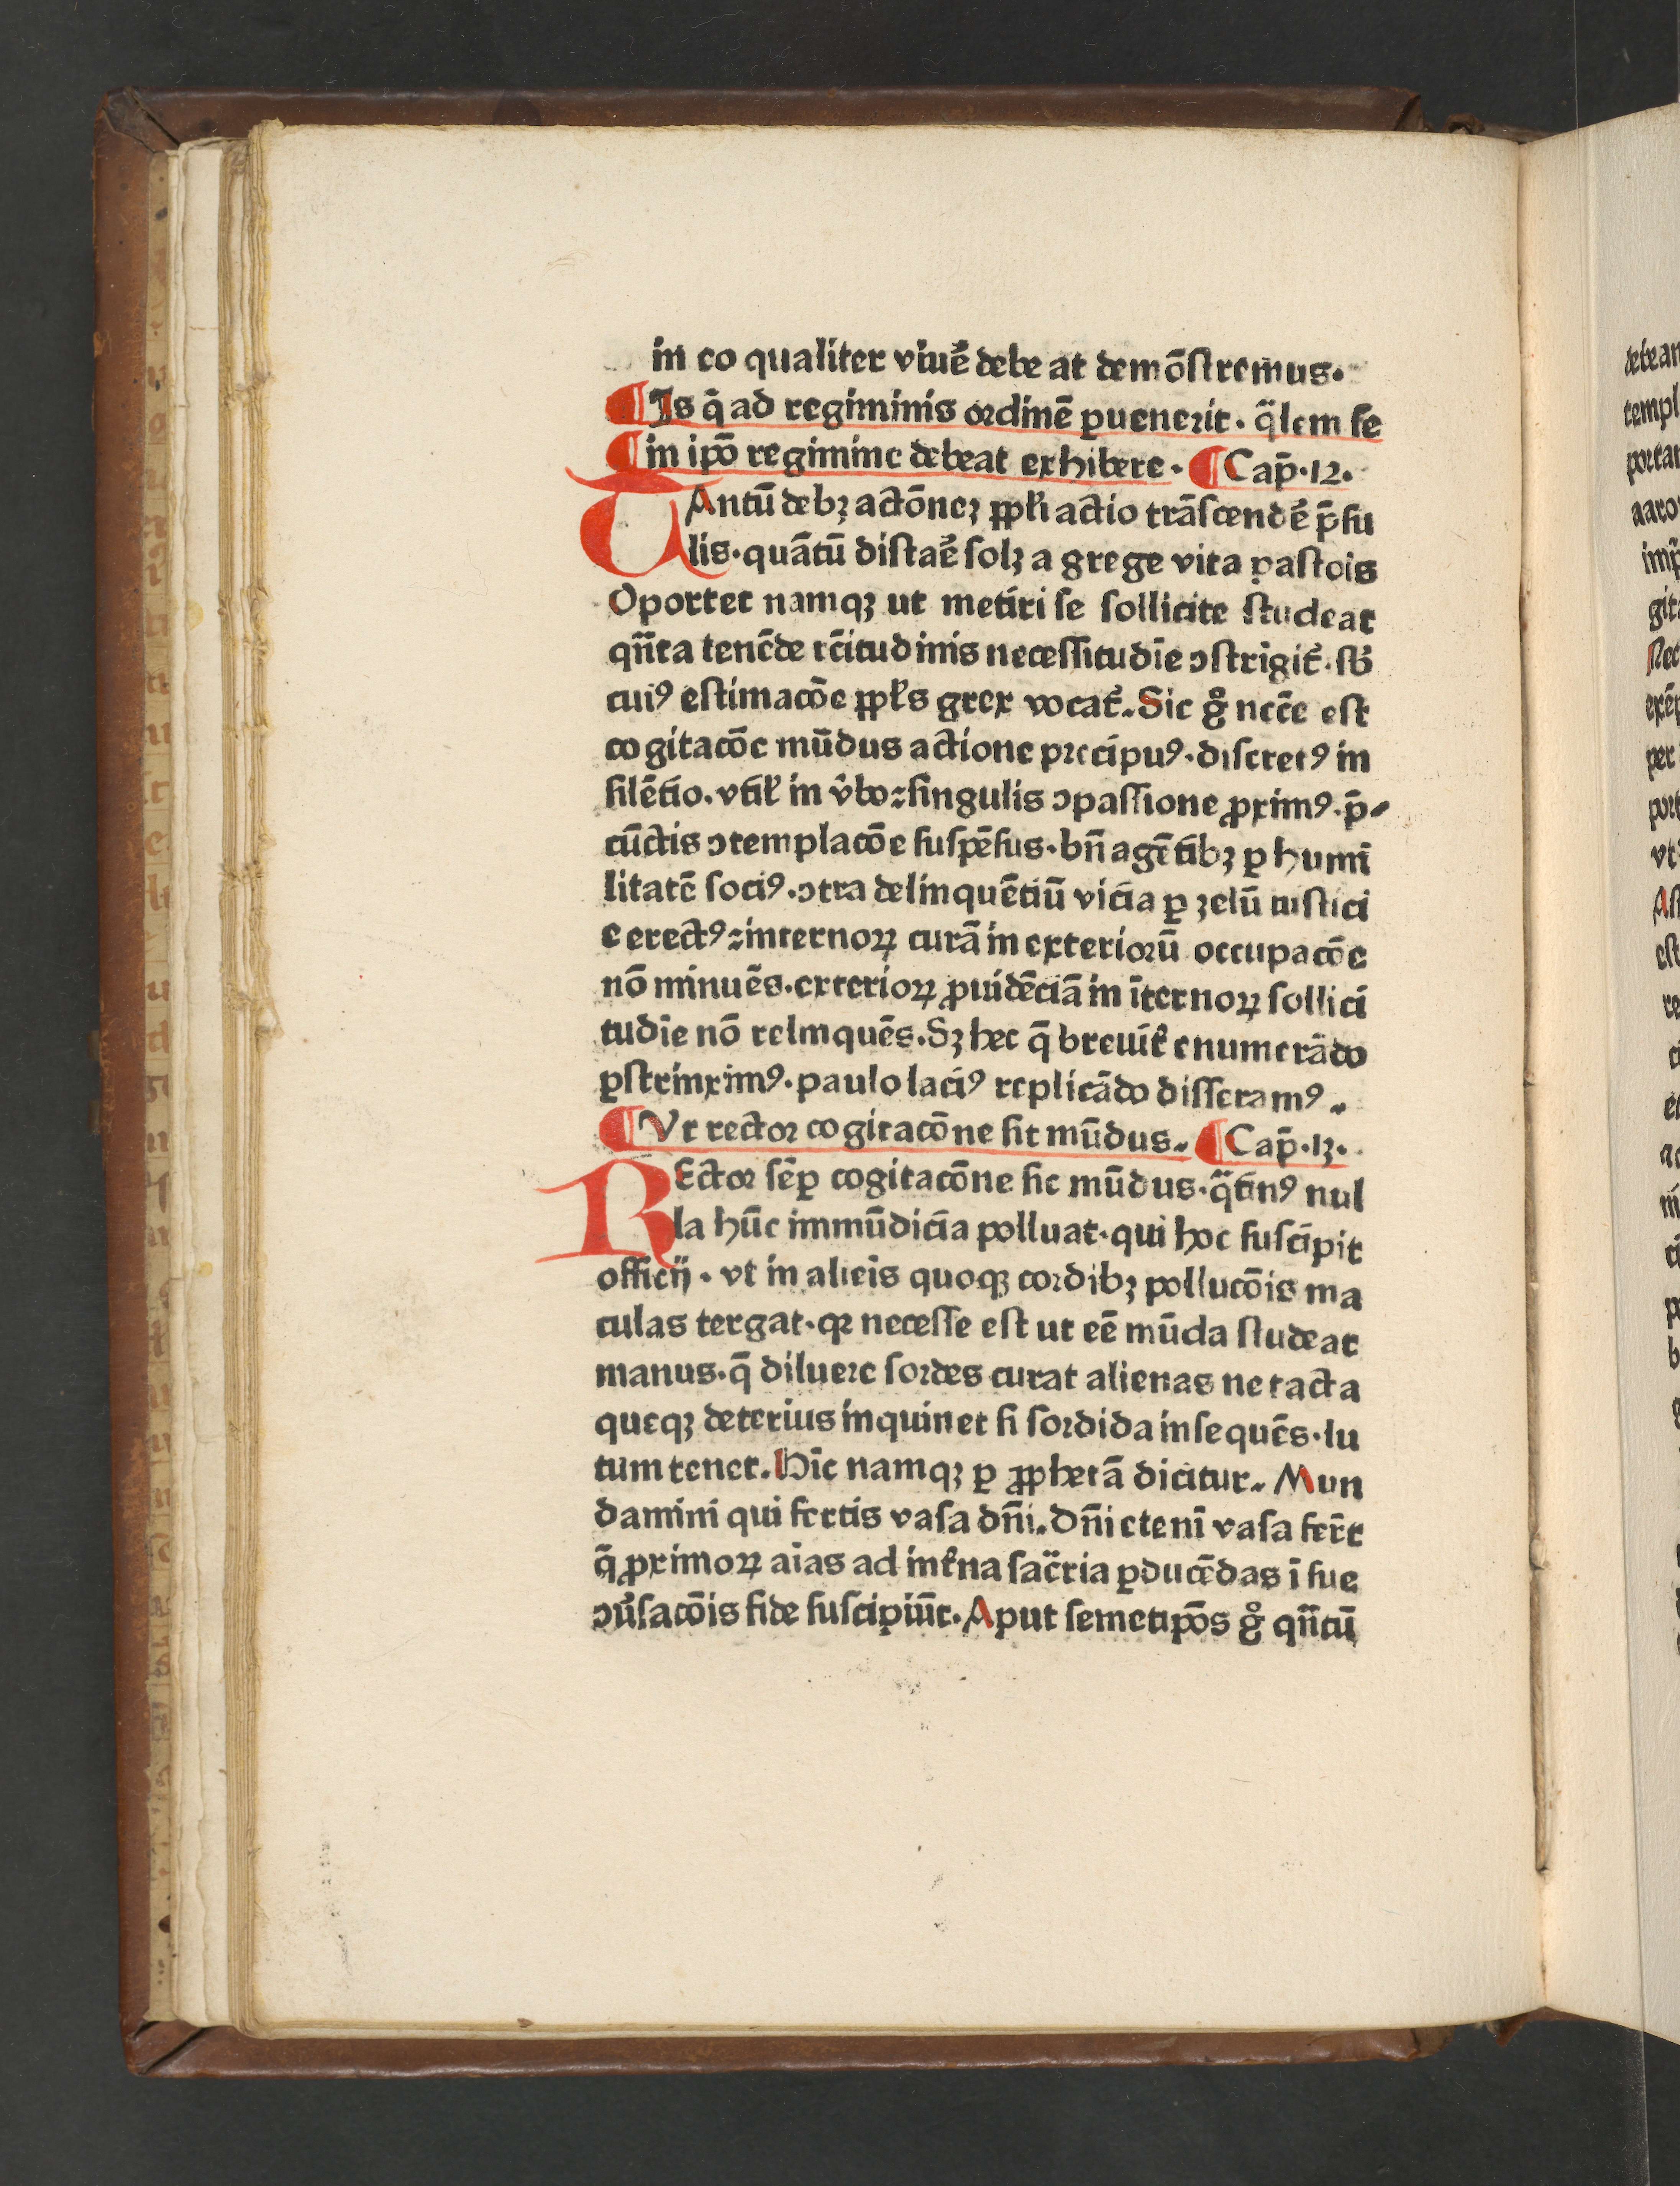 in eo qualiter viuē debe at demōſtremus.
¶ Is q̄ ad regiminis ordinē ꝑuenerit. q̈lem ſe
¶ in ip̄o regimine debeat exhibere. ¶ Cap̄.12.
TAntū debꝫ actōneꝫ ꝓpłi actio trāſcendē p̄ſu
lis. quātū diſtaē ſolꝫ a grege vita paſtois
Oportet namqꝫ ut metiri ſe ſollicite ſtudeat
qn̄ta tenēde rc̄itudinis neceſſitudīe ↄſtrīgit᷑. ſb̄
cuiꝰ eſtimacōe ꝓpłs grex vocat᷑. Sit gͦ necc̄e eſt
cogitacōe mūdus actione precipuꝰ. diſcretꝰ in
ſilētio. vtił in v̂bo ⁊ ſingulis ↄpaſſione ꝓximꝰ. p̄
cūctis ↄtemplacōe ſuſpēſus. bn̄ agētibꝫ ꝑ humi
litatē ſociꝰ. ↄtra delinquētiū vicia ꝑ zelū iuſtici
e erectꝰ ⁊ internoꝝ curā in exteriorū occupacōe
nō minuēs. exterioꝝ ꝓuidēciā in īternoꝝ ſollici
tudīe nō relinquēs. Sꝫ hec q̄ breuit᷑ enumerādo
ꝑſtrinximꝰ. paulo laciꝰ replicādo diſſeramꝰ.
¶ Vt rector cogitacōne ſit mūdus. ¶ Cap̄.13.
REctor ſēꝑ cogitacōne ſit mūdus. q̈tinꝰ nul
la hūc immūdicia polluat. qui hoc ſuſcipit
officij. vt in alieīs quoqꝫ cordibꝫ pollucōis ma
culas tergat. qꝛ neceſſe eſt ut eē mūda ſtudeat
manus. q̄ diluere ſordes curat alienas ne tacta
queqꝫ deterius inquinet ſi ſordida inſequēs. lu
tum tenet. Hīc namqꝫ ꝑ ꝓphetā dicitur. Mun
damini qui fertis vaſa dn̄i. Dn̄i etenī vaſa fer̄t
q̄ ꝓximoꝝ aīas ad int᷑na ſac̈ria ꝑducēdas ī ſue
ↄu᷑ſacōis fide ſuſcipiūt. Aput ſemetip̄os gͦ qn̄tū